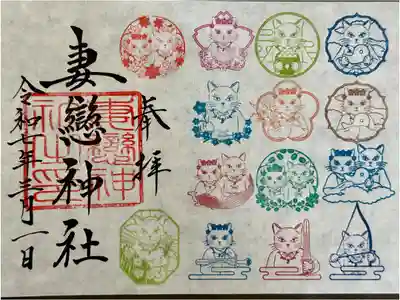 奉拝
妻戀神社
令和七年三月一日
妻戀神
社之印